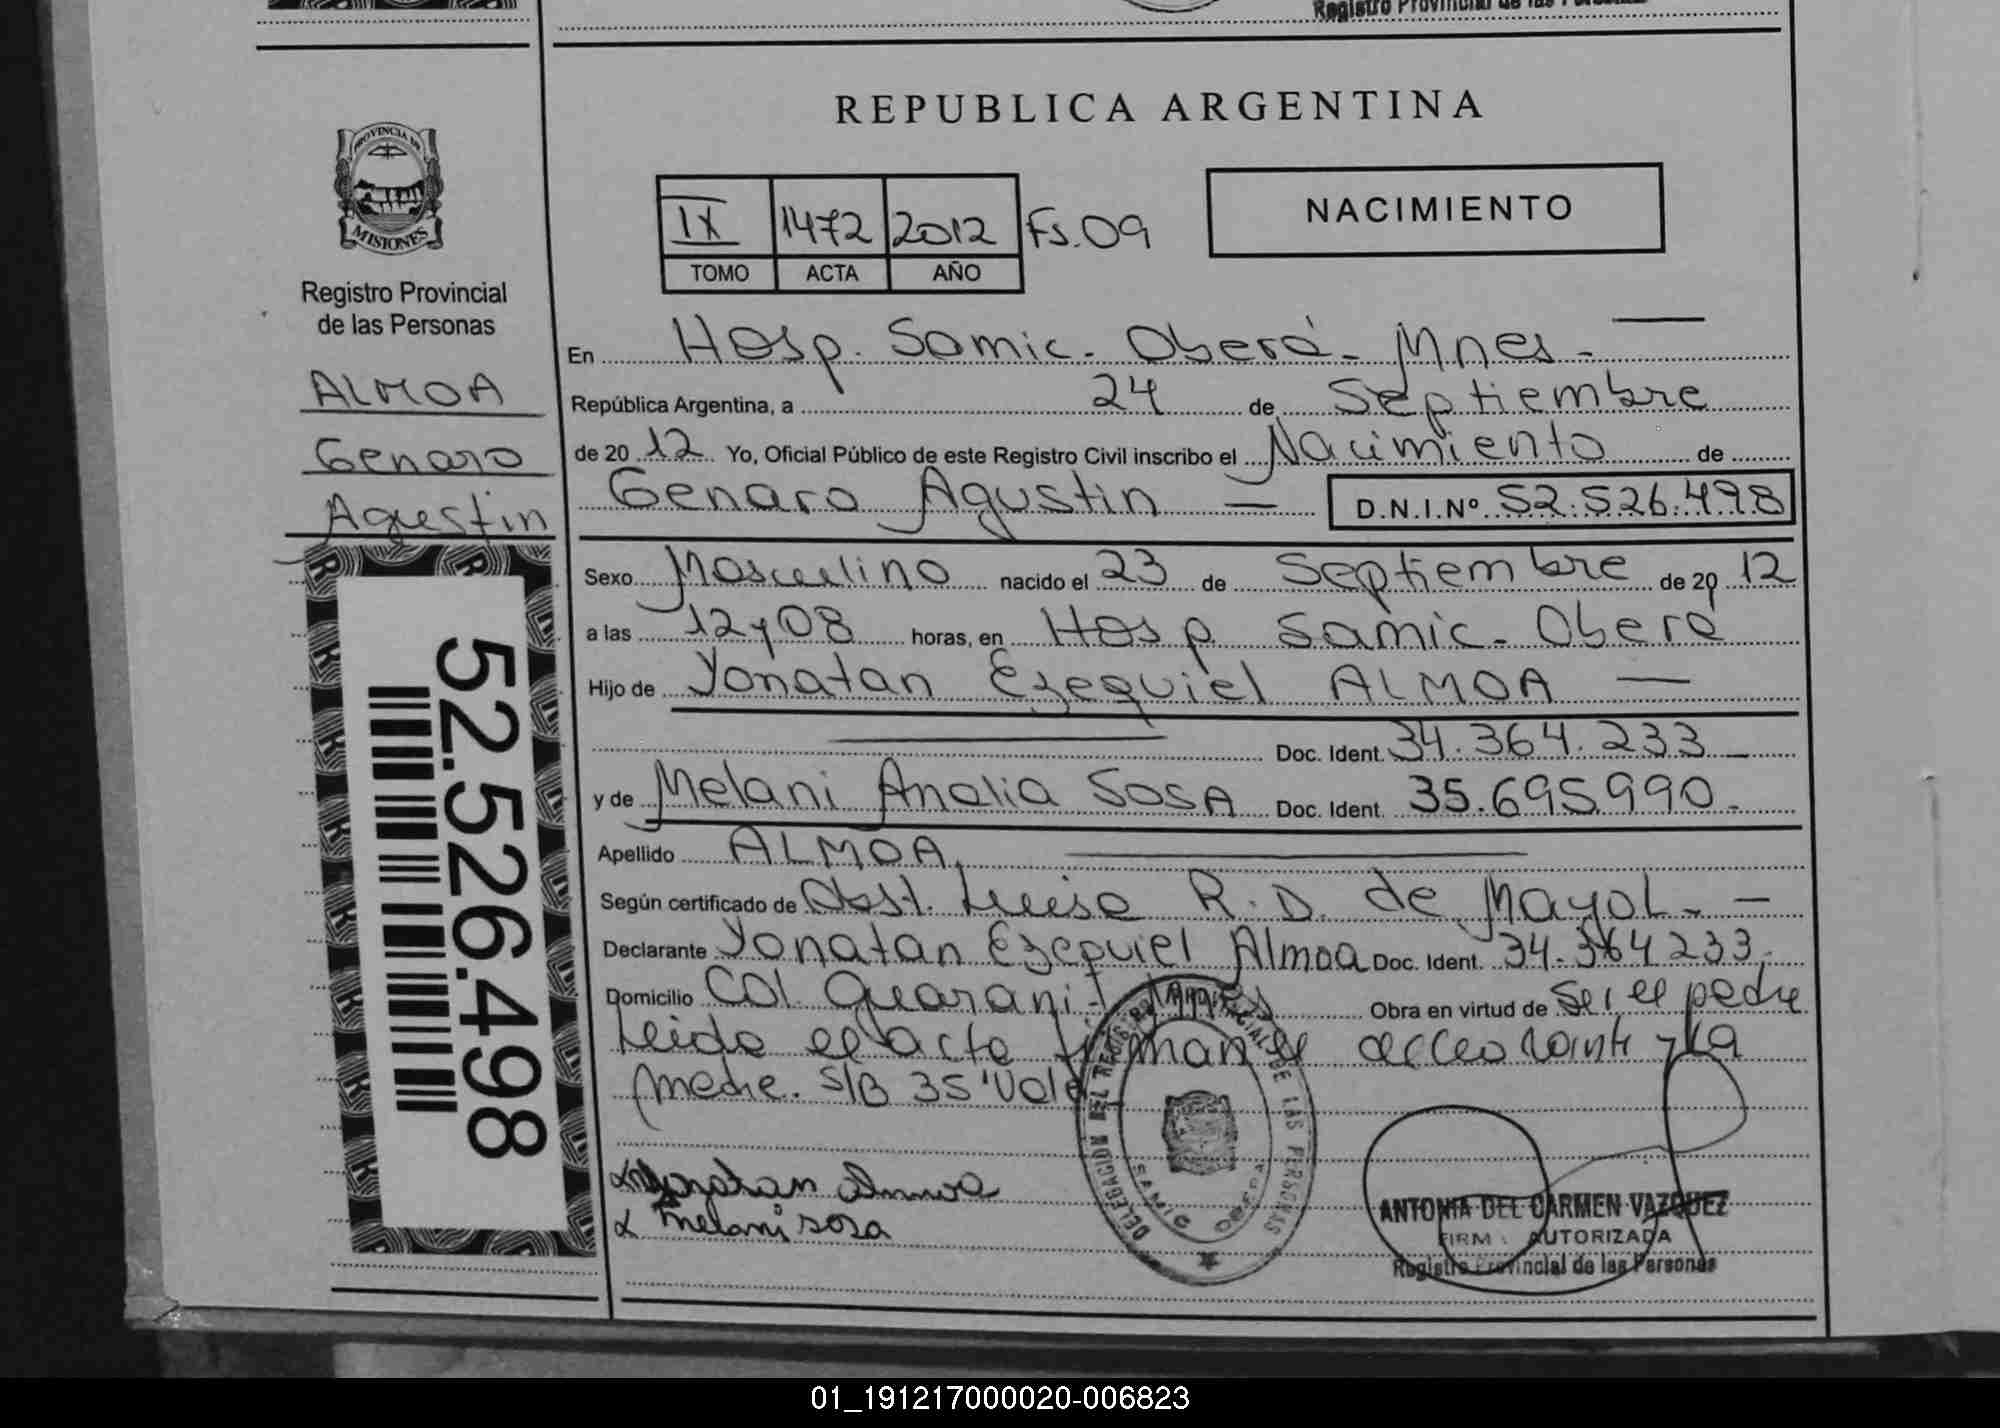 Registro Provincial de las Personas
REPUBLICA ARGENTINA
PROVINCIA DE
MISIONES
Registro Provincial
de las Personas
ALMOA
Genaro
Agustin
52.526.498
IX 1472 2012 Fs.09
TOMO ACTA AÑO
NACIMIENTO
En Hosp. Samic. Oberá - Mnes -
República Argentina, a 24 de Septiembre
de 20 12 Yo, Oficial Público de este Registro Civil inscribo el Nacimiento de
Genaro Agustin — D.N.I.Nº 52.526.498
Sexo Masculino nacido el 23 de Septiembre de 20 12
a las 12y08 horas, en Hosp. Samic. Oberá
Hijo de Yonatan Ezequiel ALMOA —
Doc. Ident. 34.364.233
y de Melani Analia SOSA Doc. Ident. 35.695990.
Apellido ALMOA.
Según certificado de Obst. Luisa R. D. de Mayol. -
Declarante Yonatan Ezequiel Almoa Doc. Ident. 34.364233.
Domicilio Col. Guarani - Mnes Obra en virtud de Ser el padre
Leida el acta firman el declarante y la
madre. S/B 35 Vale
Yonatan Almoa
melani sosa
DELEGACION DEL REGISTRO PROVINCIAL DE LAS PERSONAS
SAMIC OBERA
ANTONIA DEL CARMEN VAZQUEZ
FIRMA AUTORIZADA
Registro Provincial de las Personas
01_191217000020-006823